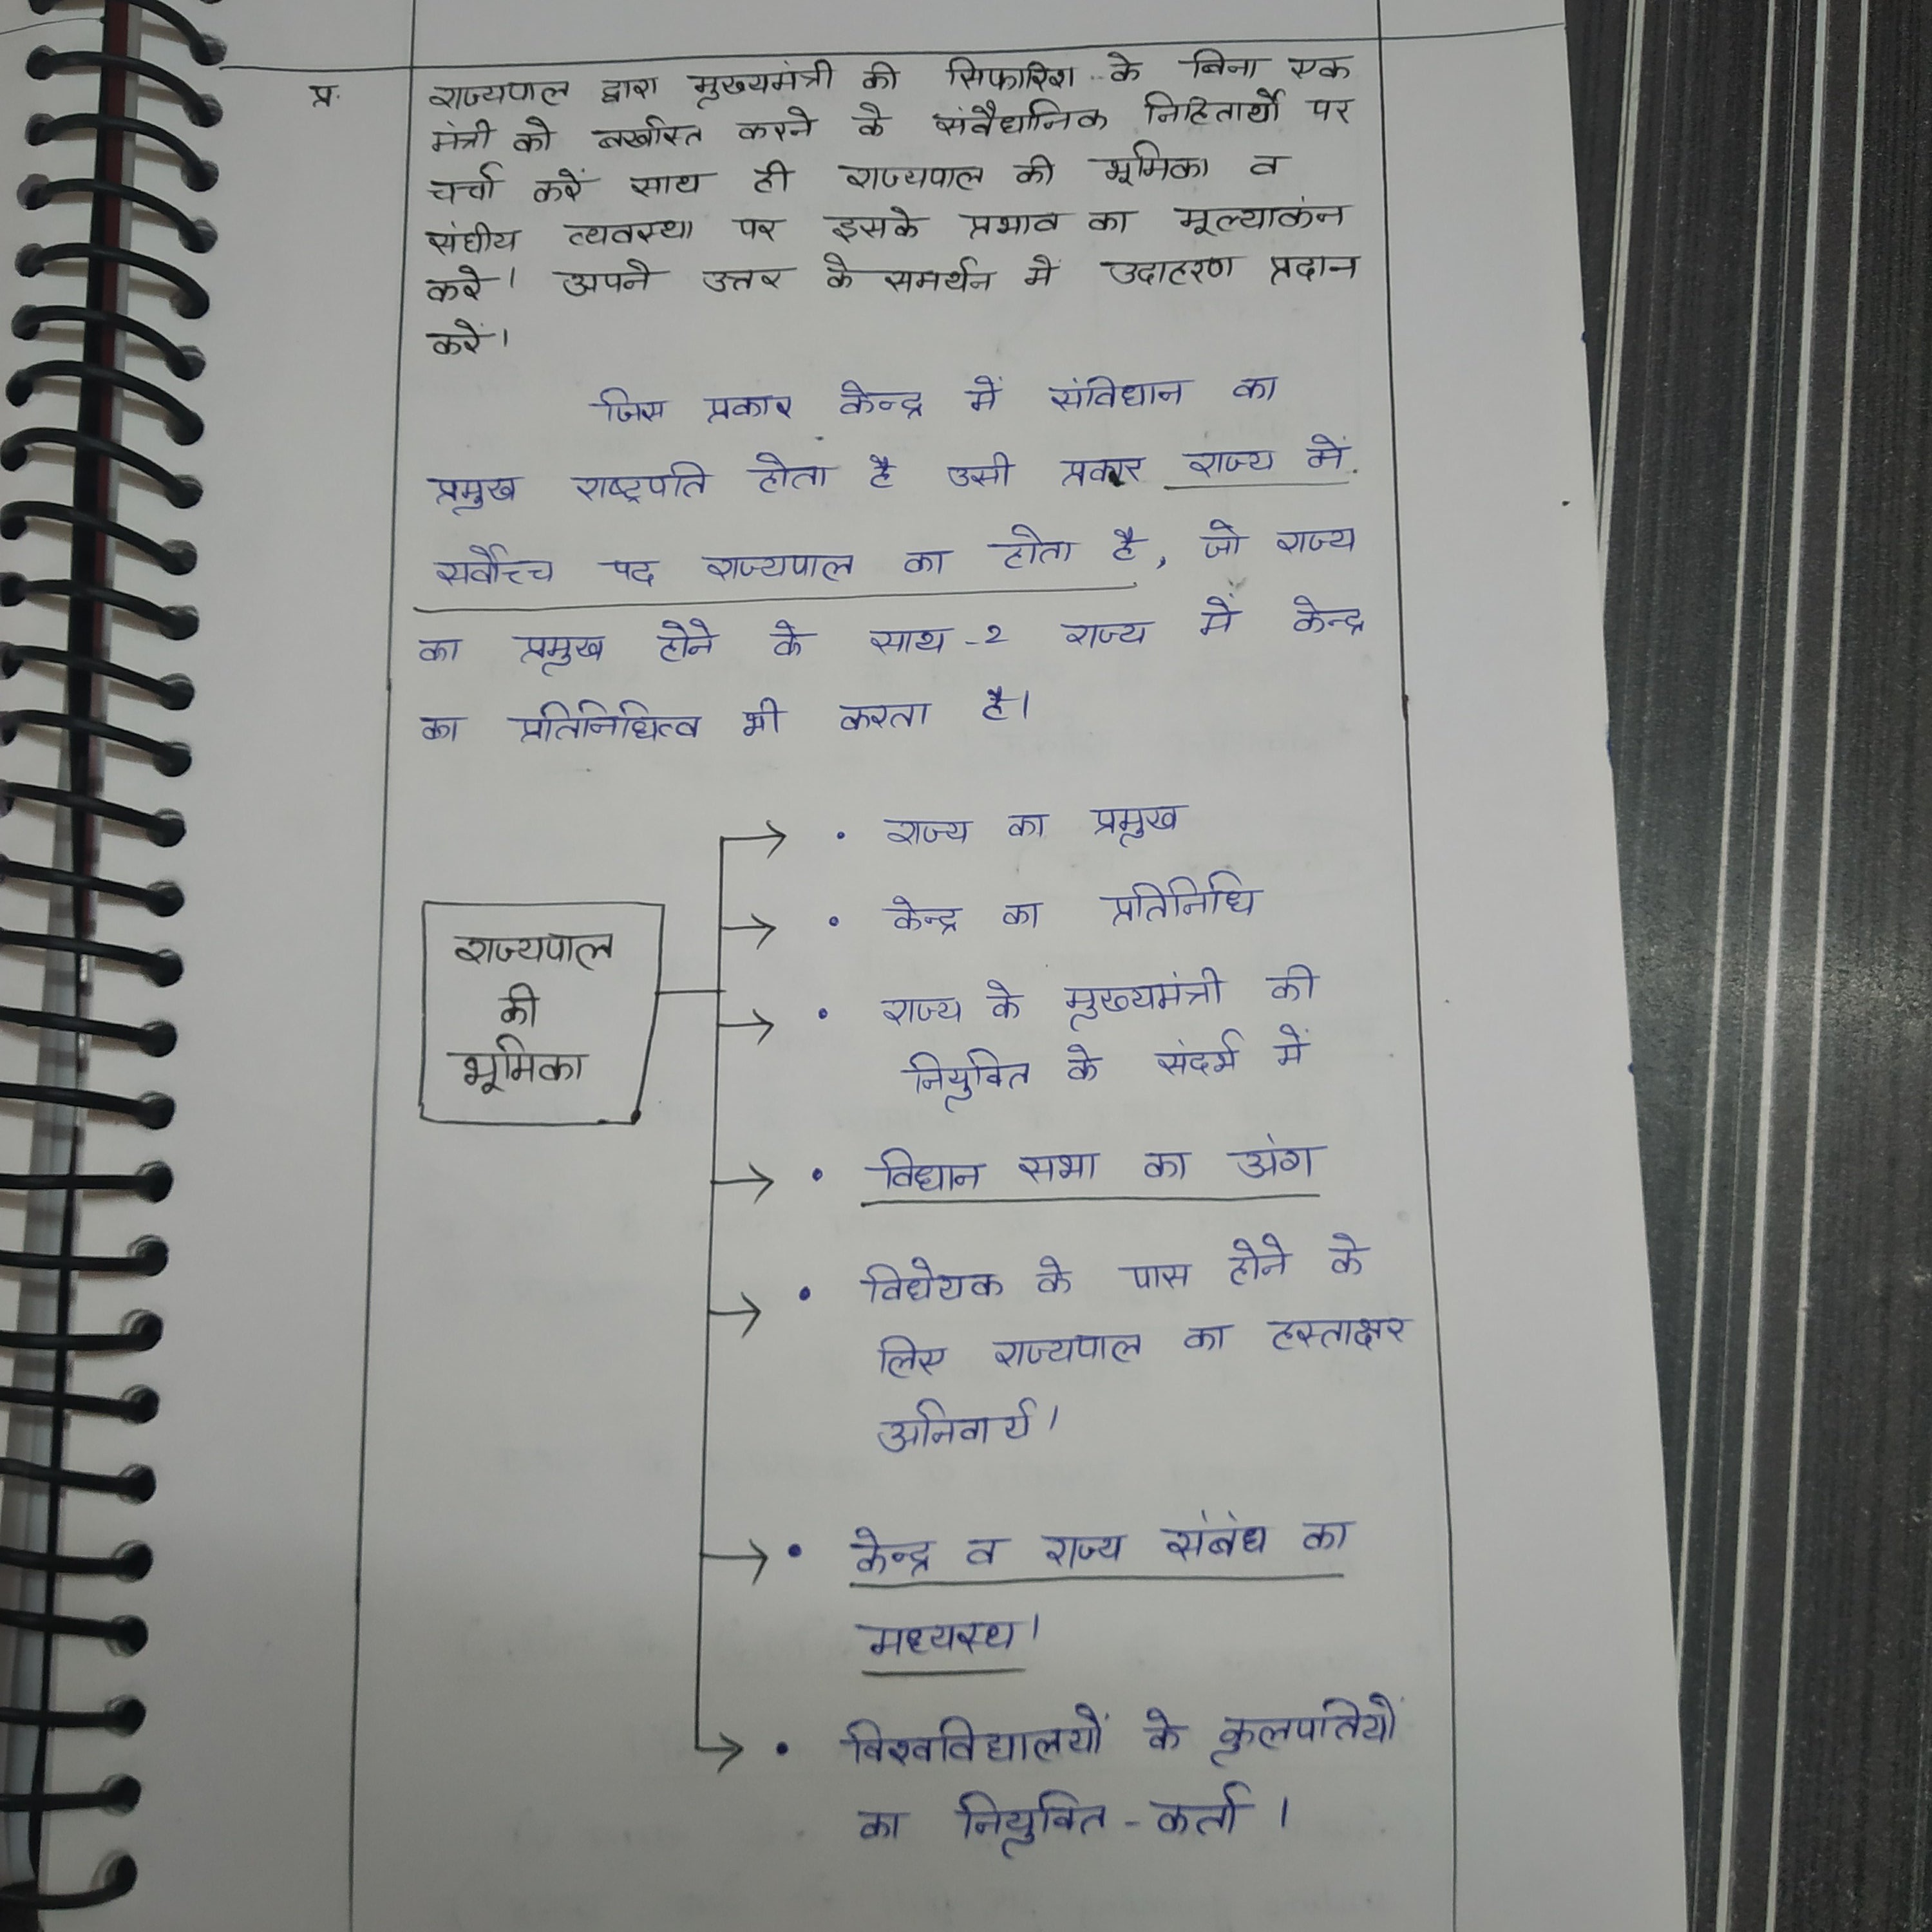 प्र.
राज्यपाल द्वारा मुख्यमंत्री की सिफारिश के बिना एक
मंत्री को बर्खास्त करने के संवैधानिक निहितार्थों पर
चर्चा करें साथ ही राज्यपाल की भूमिका व
संघीय व्यवस्था पर इसके प्रभाव का मूल्याकंन
करे। अपने उत्तर के समर्थन में उदाहरण प्रदान
करें।
जिस प्रकार केन्द्र में संविधान का
प्रमुख राष्ट्रपति होता है उसी प्रकार राज्य में
सर्वोच्च पद राज्यपाल का होता है, जो राज्य
का प्रमुख होने के साथ-2 राज्य में केन्द्र
का प्रतिनिधित्व भी करता है।
राज्यपाल
की
भूमिका
• राज्य का प्रमुख
• केन्द्र का प्रतिनिधि
• राज्य के मुख्यमंत्री की
नियुक्ति के संदर्भ में
• विधान सभा का अंग
• विधेयक के पास होने के
लिए राज्यपाल का हस्ताक्षर
अनिवार्य।
• केन्द्र व राज्य संबंध का
मध्यस्थ।
• विश्वविद्यालयों के कुलपतियों
का नियुक्ति-कर्ता।